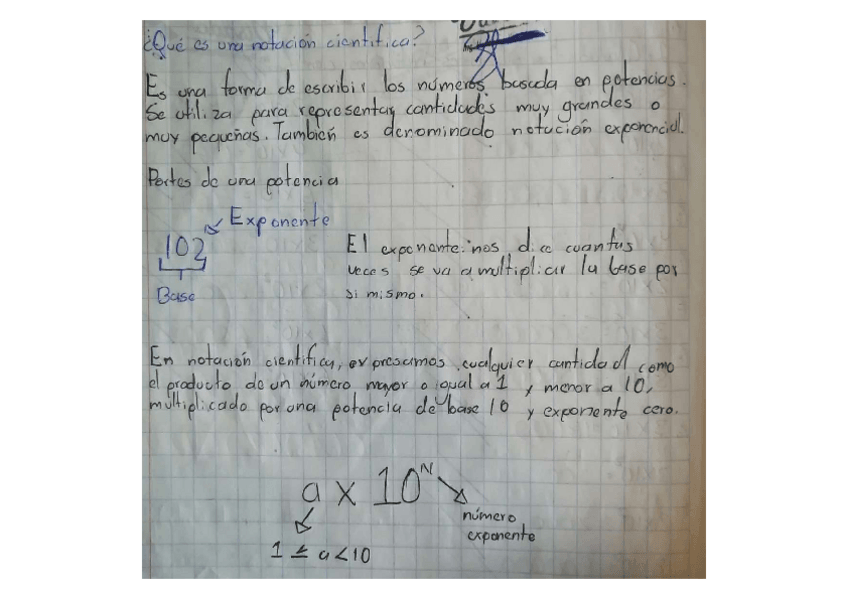 ¿Qué es una notación científica?
Es una forma de escribir los números basada en potencias.
Se utiliza para representar cantidades muy grandes o
muy pequeñas. También es denominado notación exponencial.
Partes de una potencia
Exponente
102
Base
El exponente nos dice cuantas
veces se va a multiplicar la base por
si mismo.
En notación científica, expresamos cualquier cantidad como
el producto de un número mayor o igual a 1 y menor a 10,
multiplicado por una potencia de base 10 y exponente cero.
a x 10ᴺ
número
exponente
1 ≤ a < 10